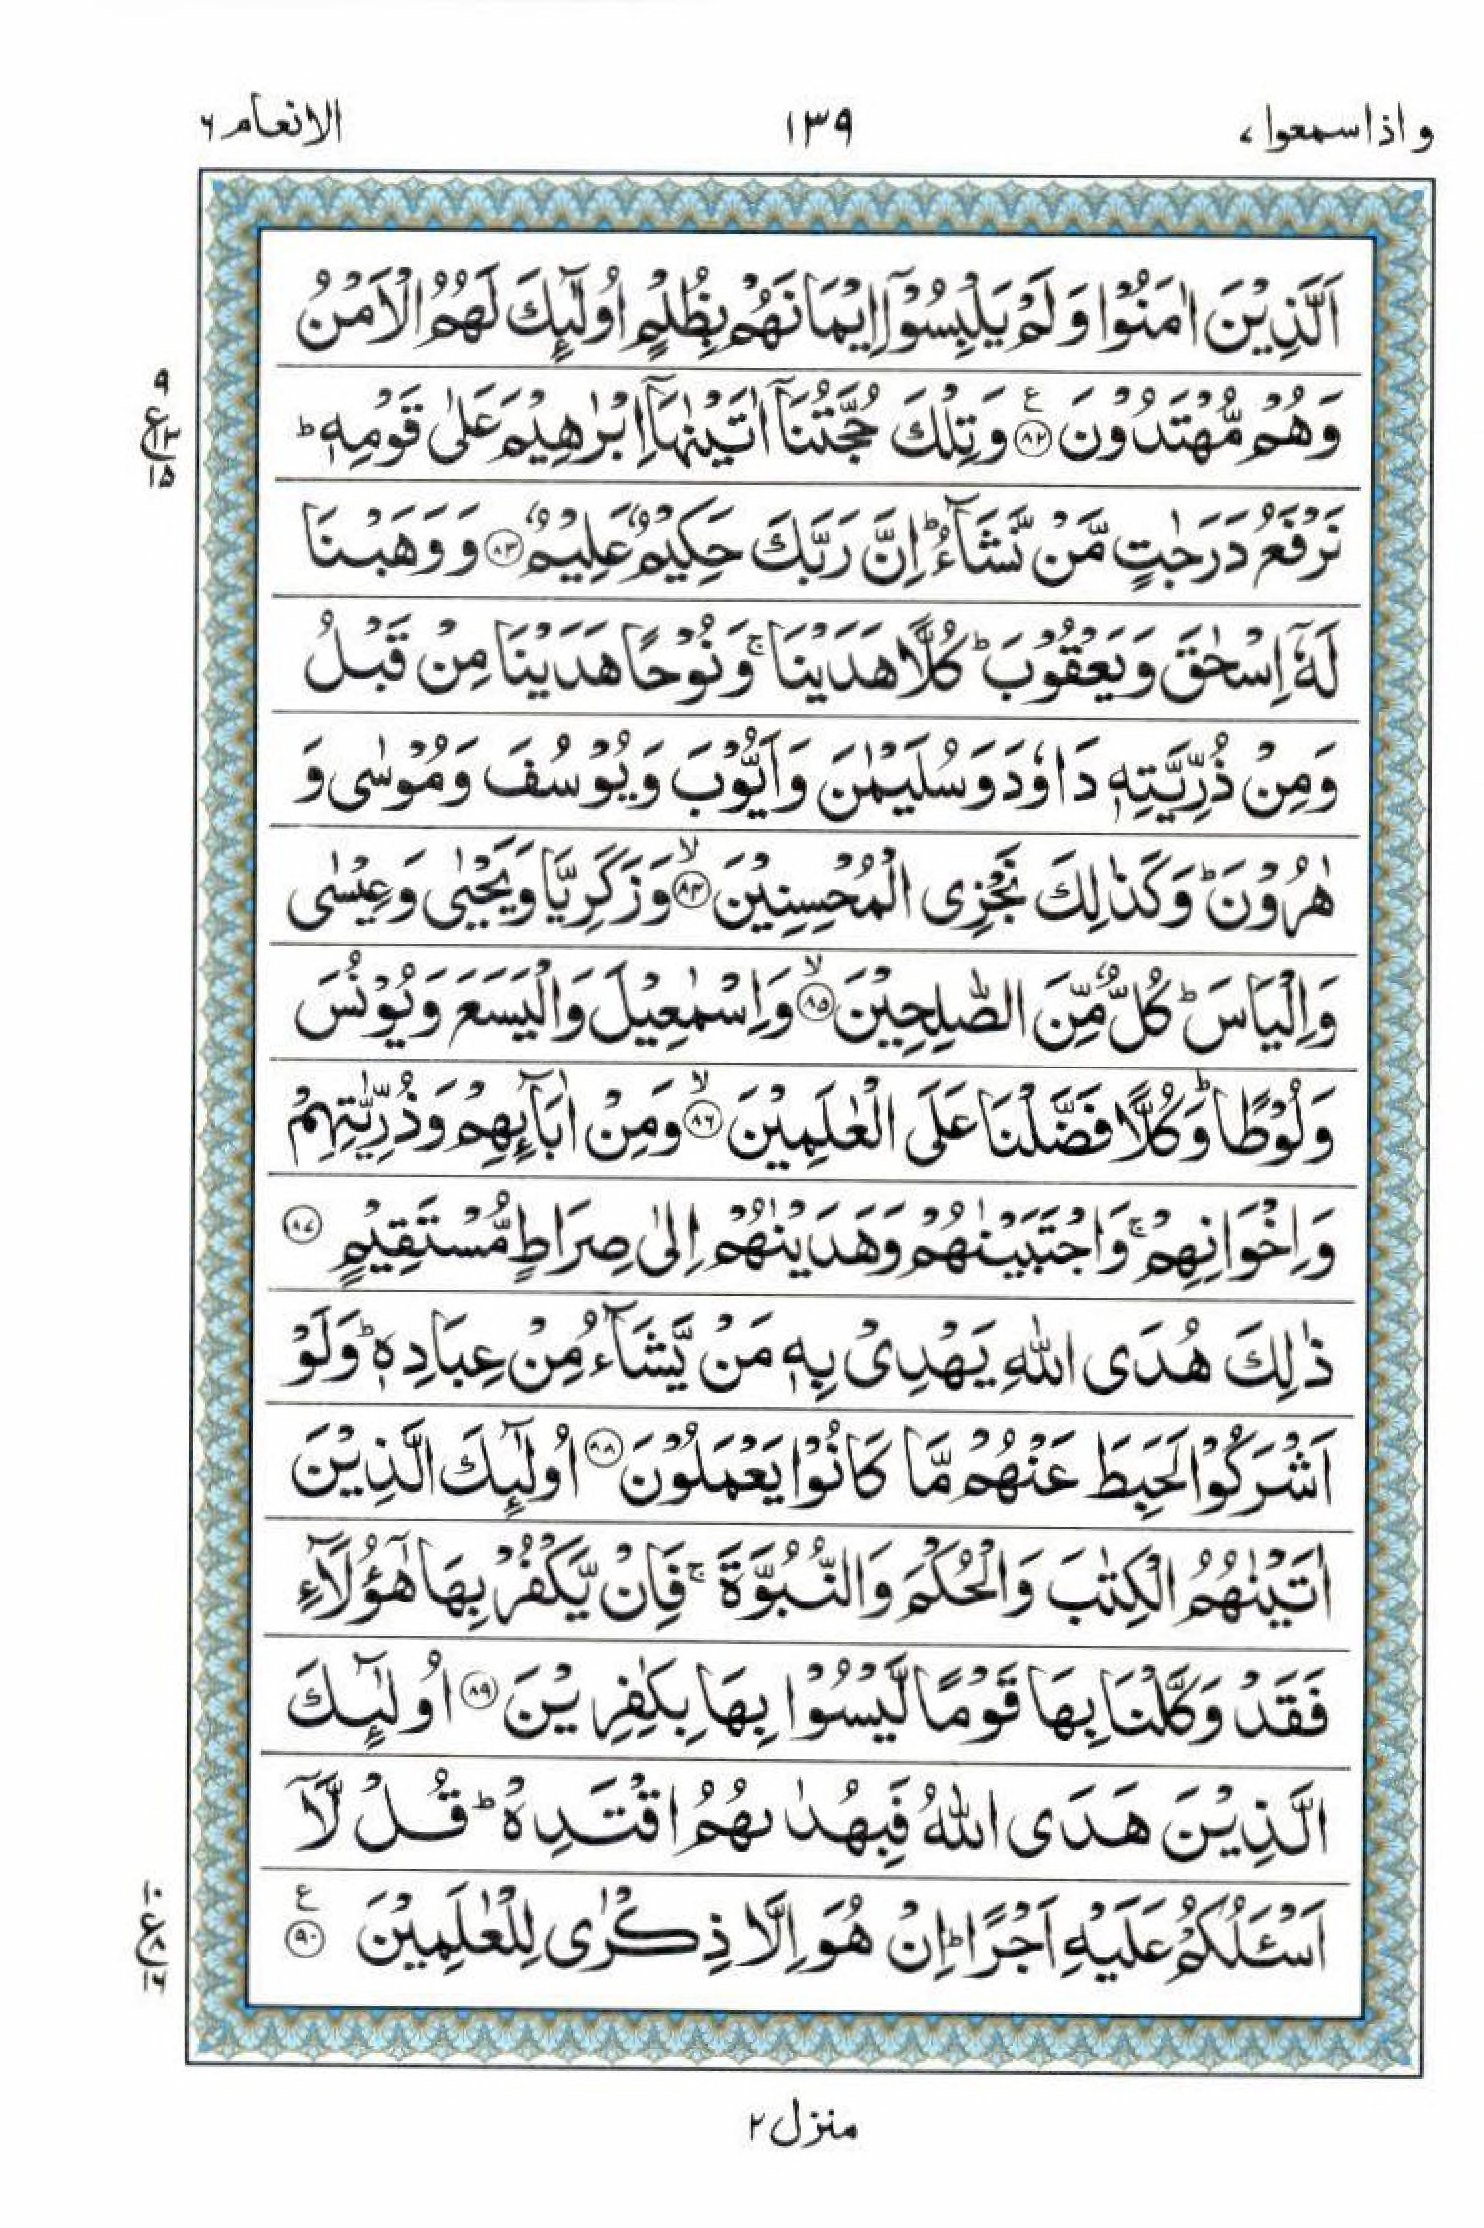 و اذا سمعوا ۷ ۱۳۹ الانعام ۶
اَلَّذِيْنَ اٰمَنُوْا وَ لَمْ يَلْبِسُوْۤا اِيْمَانَهُمْ بِظُلْمٍ اُولٰٓئِكَ لَهُمُ الْاَمْنُ
وَ هُمْ مُّهْتَدُوْنَ ع ۸۲ وَ تِلْكَ حُجَّتُنَاۤ اٰتَيْنٰهَاۤ اِبْرٰهِيْمَ عَلٰى قَوْمِهٖ ط
۹
ع ۱۳
۱۵
نَرْفَعُ دَرَجٰتٍ مَّنْ نَّشَآءُ ط اِنَّ رَبَّكَ حَكِيْمٌ عَلِيْمٌ ۸۳ وَ وَهَبْنَا
لَهٗۤ اِسْحٰقَ وَ يَعْقُوْبَ ط كُلًّا هَدَيْنَا ج وَ نُوْحًا هَدَيْنَا مِنْ قَبْلُ
وَ مِنْ ذُرِّيَّتِهٖ دَاوٗدَ وَ سُلَيْمٰنَ وَ اَيُّوْبَ وَ يُوْسُفَ وَ مُوْسٰى وَ
هٰرُوْنَ ط وَ كَذٰلِكَ نَجْزِى الْمُحْسِنِيْنَ لا ۸۴ وَ زَكَرِيَّا وَ يَحْيٰى وَ عِيْسٰى
وَ اِلْيَاسَ ط كُلٌّ مِّنَ الصّٰلِحِيْنَ لا ۸۵ وَ اِسْمٰعِيْلَ وَ الْيَسَعَ وَ يُوْنُسَ
وَ لُوْطًا ط وَ كُلًّا فَضَّلْنَا عَلَى الْعٰلَمِيْنَ لا ۸۶ وَ مِنْ اٰبَآئِهِمْ وَ ذُرِّيّٰتِهِمْ
وَ اِخْوَانِهِمْ ج وَ اجْتَبَيْنٰهُمْ وَ هَدَيْنٰهُمْ اِلٰى صِرَاطٍ مُّسْتَقِيْمٍ ۸۷
ذٰلِكَ هُدَى اللّٰهِ يَهْدِىْ بِهٖ مَنْ يَّشَآءُ مِنْ عِبَادِهٖ ط وَ لَوْ
اَشْرَكُوْا لَحَبِطَ عَنْهُمْ مَّا كَانُوْا يَعْمَلُوْنَ ۸۸ اُولٰٓئِكَ الَّذِيْنَ
اٰتَيْنٰهُمُ الْكِتٰبَ وَ الْحُكْمَ وَ النُّبُوَّةَ ج فَاِنْ يَّكْفُرْ بِهَا هٰۤؤُلَآءِ
فَقَدْ وَكَّلْنَا بِهَا قَوْمًا لَّيْسُوْا بِهَا بِكٰفِرِيْنَ ۸۹ اُولٰٓئِكَ
الَّذِيْنَ هَدَى اللّٰهُ فَبِهُدٰىهُمُ اقْتَدِهْ ط قُلْ لَّاۤ
اَسْـَٔلُكُمْ عَلَيْهِ اَجْرًا ط اِنْ هُوَ اِلَّا ذِكْرٰى لِلْعٰلَمِيْنَ ع ۹۰
۱۰
ع ۸
۱۶
منزل ۲